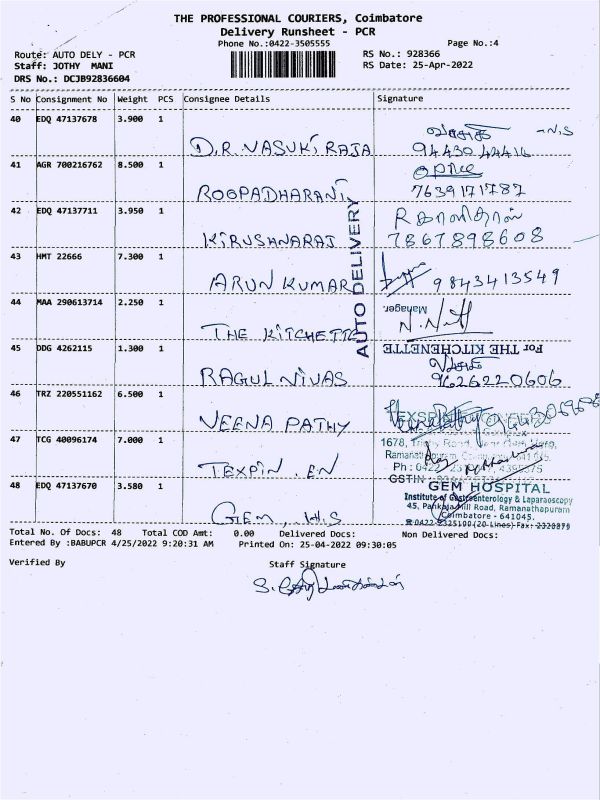 THE PROFESSIONAL COURIERS, Coimbatore
Delivery Runsheet - PCR
Phone No.:0422-3505555
Page No.:4
Route: AUTO DELY - PCR
RS No.: 928366
Staff: JOTHY MANI
RS Date: 25-Apr-2022
DRS No.: DCJB92836604
S No Consignment No Weight PCS Consignee Details Signature
40 EDQ 47137678 3.900 1
D.R. VASUKi RAJA
வாசுகி -N.S
94430 44414
41 AGR 700216762 8.500 1
ROOPADHARANi
7639171787
42 EDQ 47137711 3.950 1
KiRUSHNARAJ
7867898608
43 HMT 22666 7.300 1
ARUN KUMAR
9843413549
AUTO DELIVERY
44 MAA 290613714 2.250 1
THE KiTCHETTE
Manager.
For THE KITCHENETTE
45 DDG 4262115 1.300 1
RAGUL NiVAS
9626220606
46 TRZ 220551162 6.500 1
VEENA PATHY
47 TCG 40096174 7.000 1
TEXPiN . EN
1678,
Ramanathapuram,
Ph : 0422
GSTIN
48 EDQ 47137670 3.580 1
GEM, H.S
GEM HOSPITAL
Institute of Gastroenterology & Laparaoscopy
45, Pankaja Mill Road, Ramanathapuram
Coimbatore - 641045.
0422-2325100 (20 Lines) Fax: 2320879
Total No. Of Docs: 48 Total COD Amt: 0.00 Delivered Docs: Non Delivered Docs:
Entered By :BABUPCR 4/25/2022 9:20:31 AM Printed On: 25-04-2022 09:30:05
Verified By Staff Signature